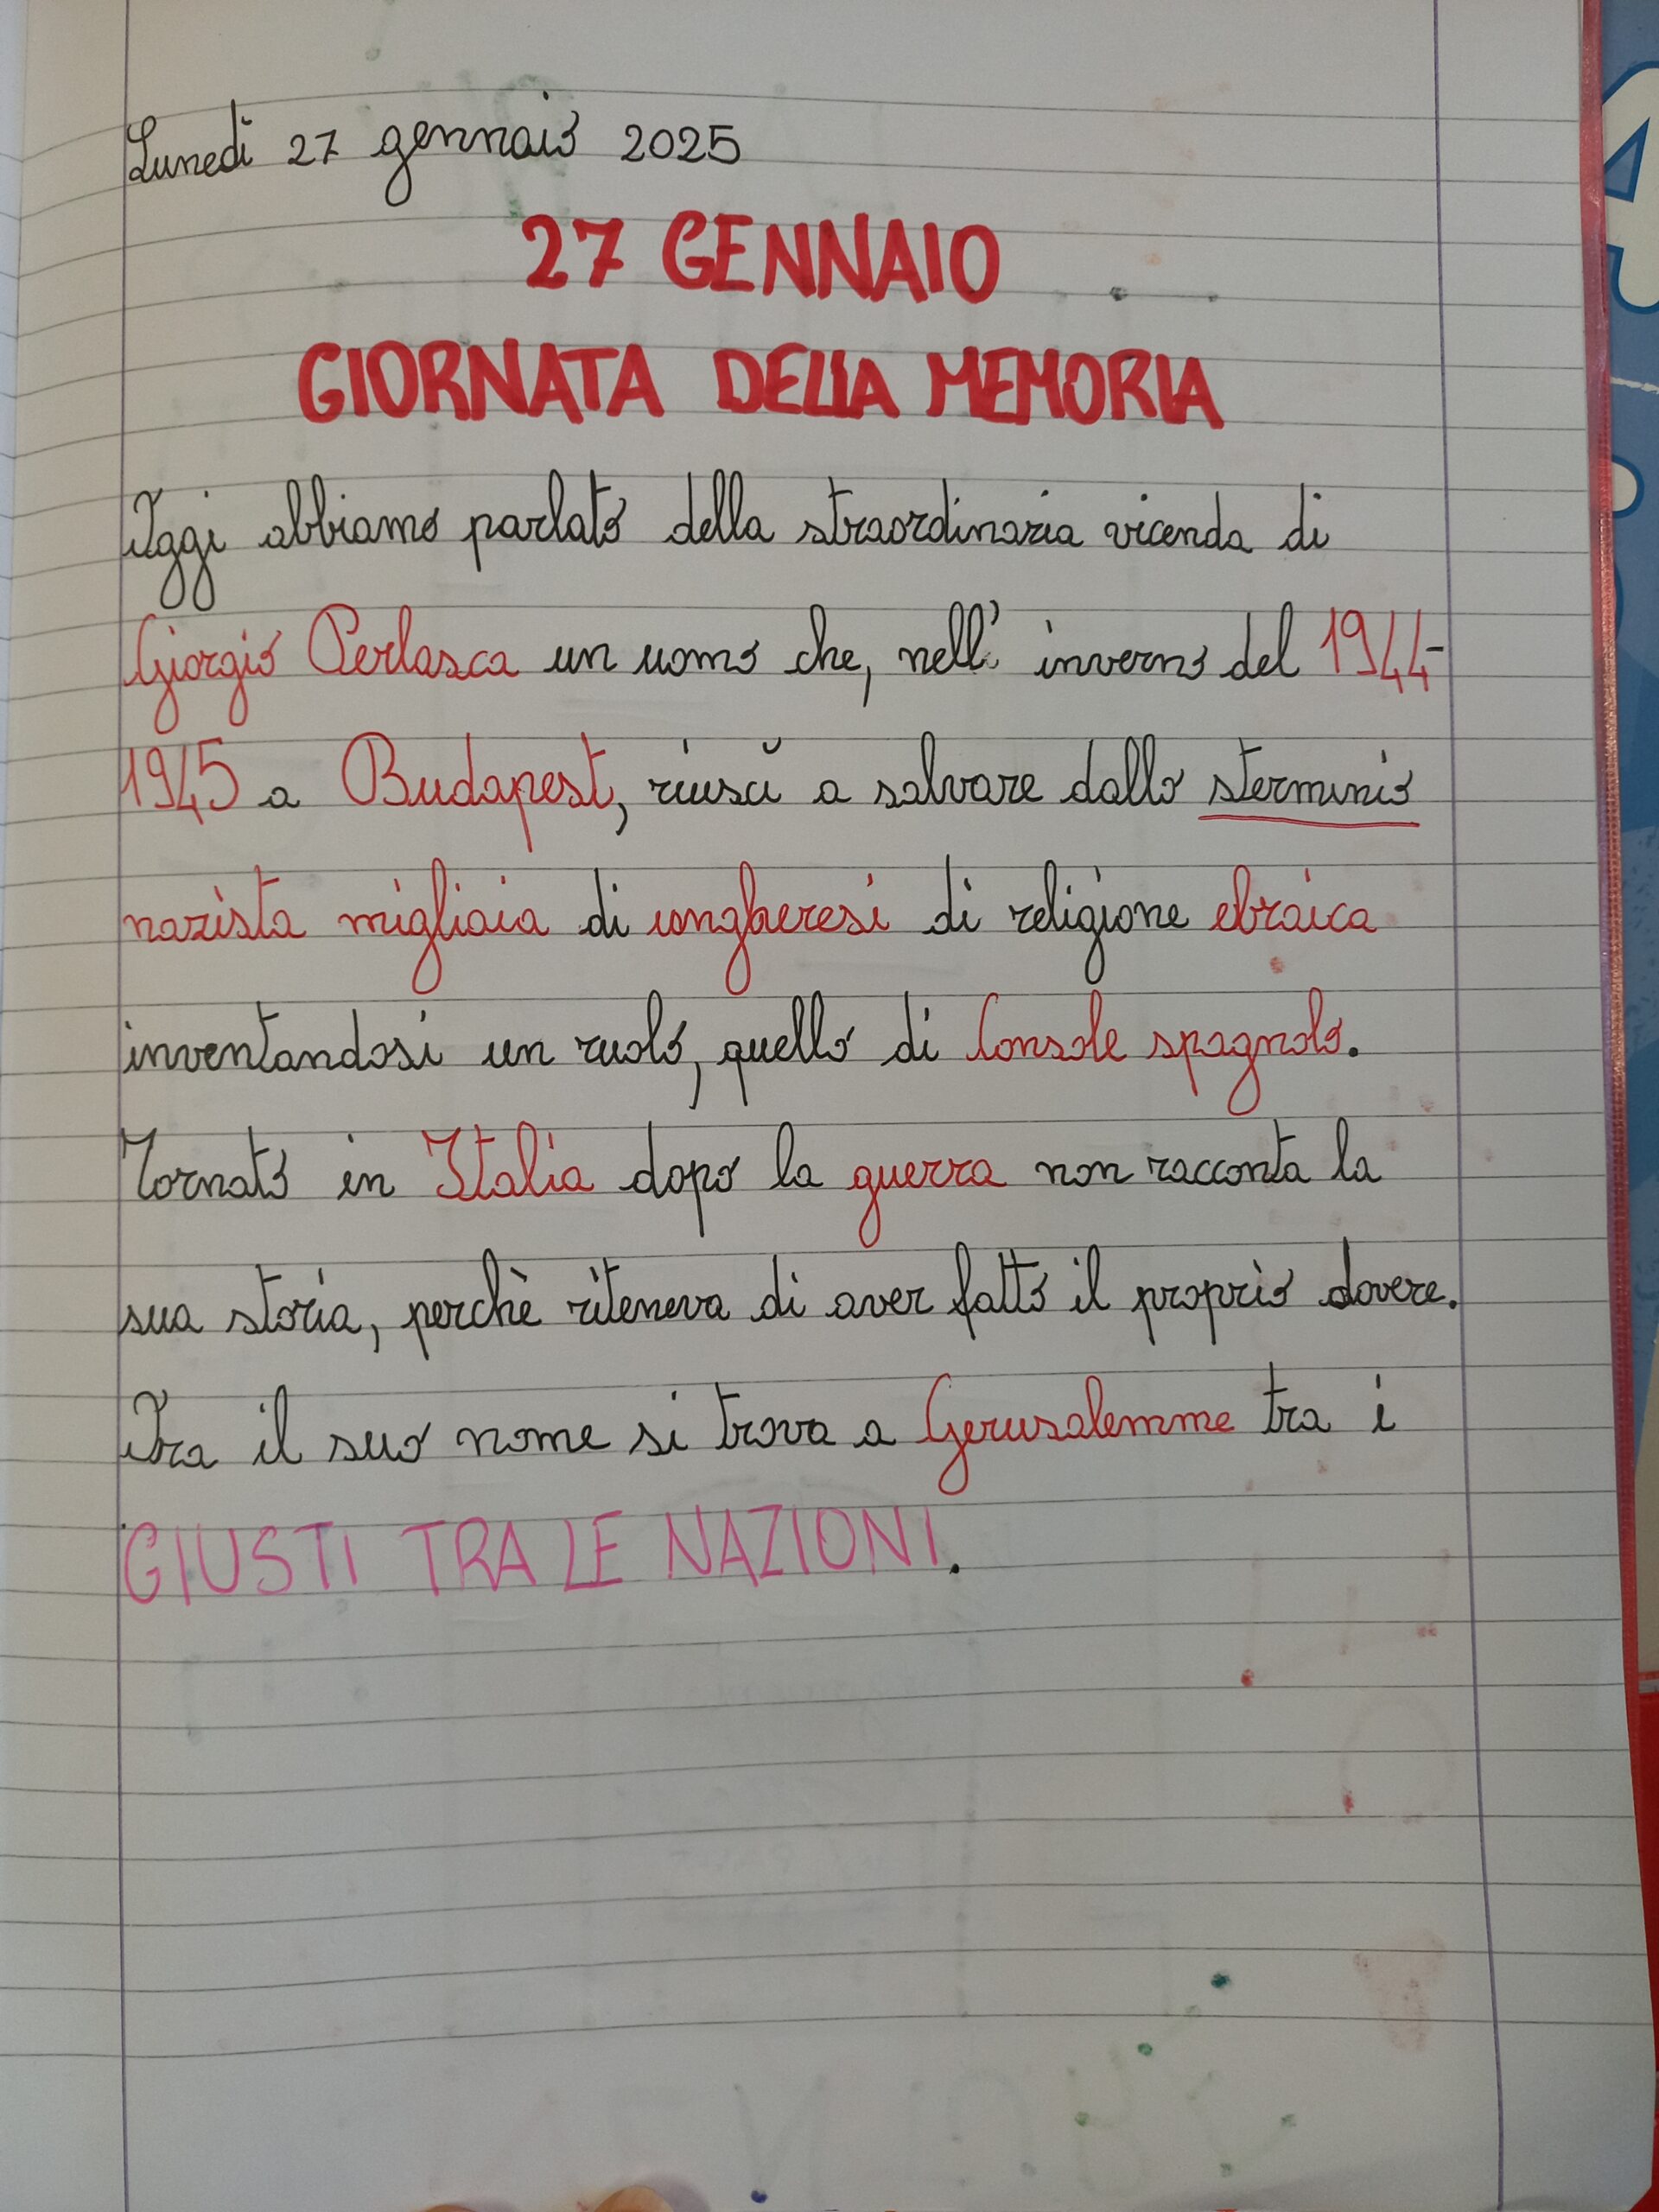 Lunedì 27 gennaio 2025
27 GENNAIO
GIORNATA DELLA MEMORIA
Oggi abbiamo parlato della straordinaria vicenda di
Giorgio Perlasca un uomo che, nell' inverno del 1944-
1945 a Budapest, riuscì a salvare dallo sterminio
nazista migliaia di ungheresi di religione ebraica
inventandosi un ruolo, quello di Console spagnolo.
Tornato in Italia dopo la guerra non racconta la
sua storia, perchè riteneva di aver fatto il proprio dovere.
Ora il suo nome si trova a Gerusalemme tra i
GIUSTI TRA LE NAZIONI.